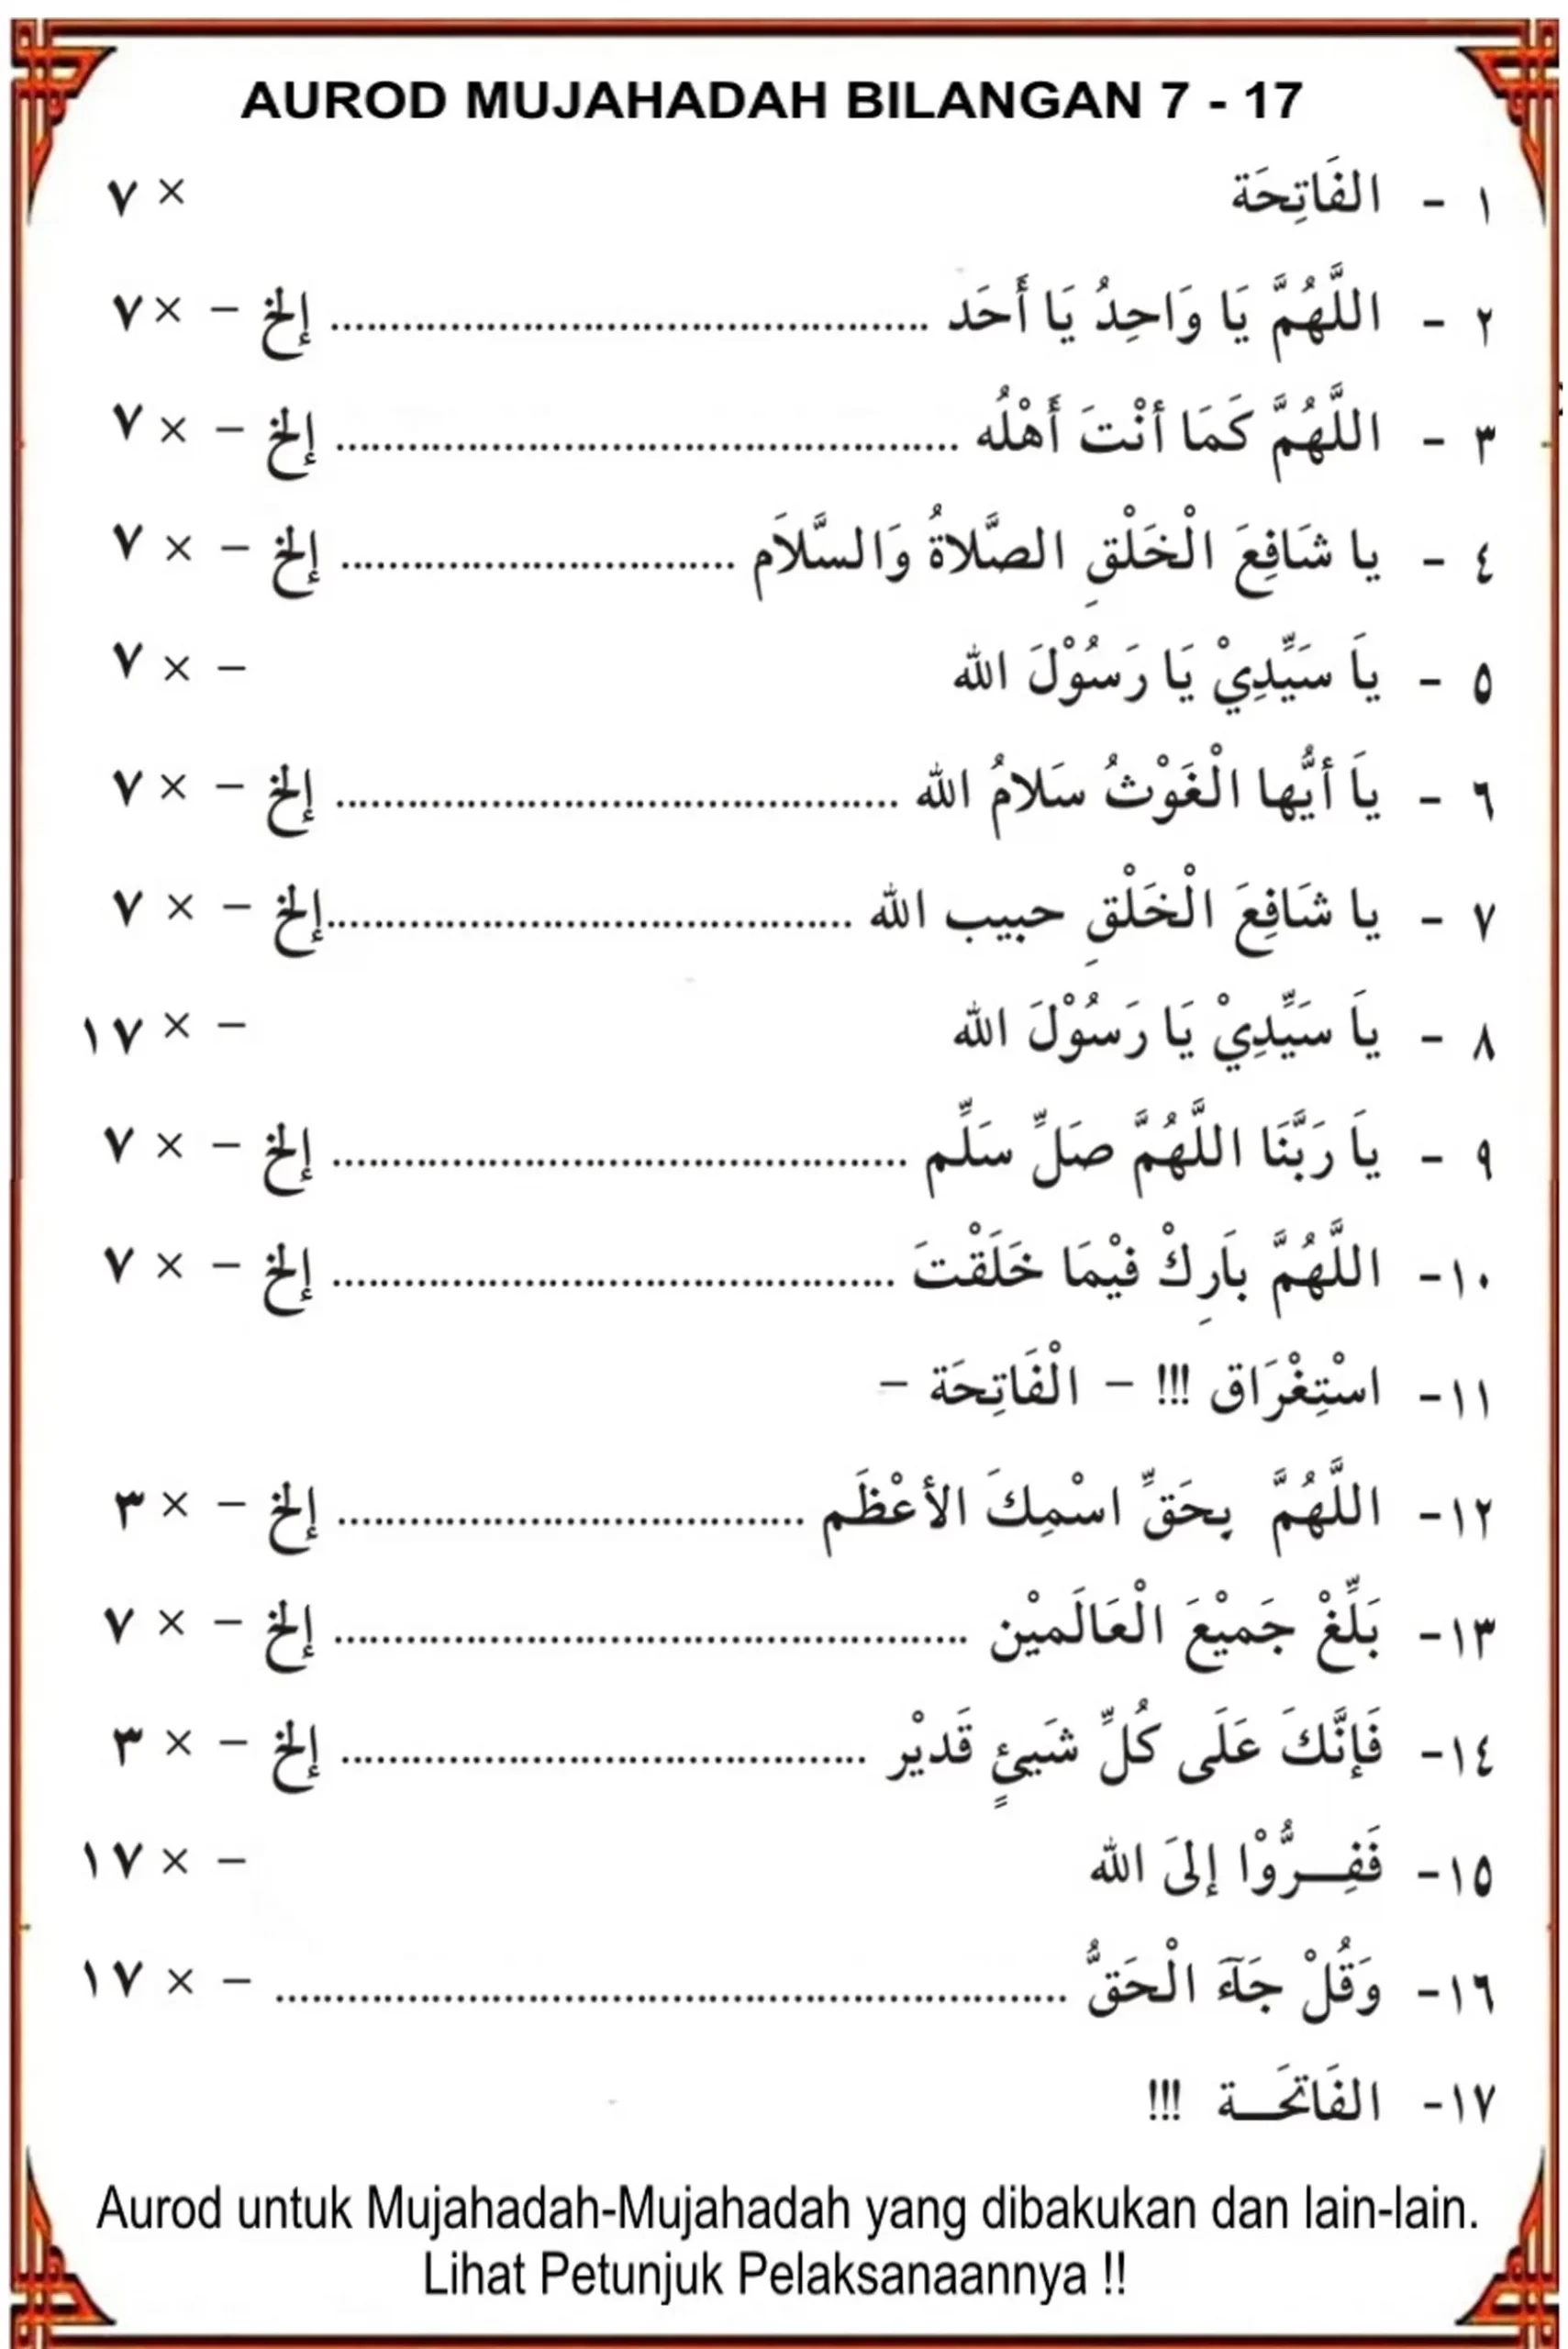 AUROD MUJAHADAH BILANGAN 7 - 17
١ - الفَاتِحَة × ٧
٢ - اللَّهُمَّ يَا وَاحِدُ يَا أَحَد .................................................. إلخ - × ٧
٣ - اللَّهُمَّ كَمَا أنْتَ أَهْلُه .................................................... إلخ - × ٧
٤ - يا شَافِعَ الْخَلْقِ الصَّلاةُ وَالسَّلاَم ................................. إلخ - × ٧
٥ - يَا سَيِّدِيْ يَا رَسُوْلَ الله - × ٧
٦ - يَا أيُّها الْغَوْثُ سَلامُ الله ............................................... إلخ - × ٧
٧ - يا شَافِعَ الْخَلْقِ حبيب الله ............................................إلخ - × ٧
٨ - يَا سَيِّدِيْ يَا رَسُوْلَ الله - × ١٧
٩ - يَا رَبَّنَا اللَّهُمَّ صَلِّ سَلِّم ................................................ إلخ - × ٧
١٠- اللَّهُمَّ بَارِكْ فيْمَا خَلَقْتَ ............................................... إلخ - × ٧
١١- اسْتِغْرَاق !!! - الْفَاتِحَة -
١٢- اللَّهُمَّ بِحَقِّ اسْمِكَ الأعْظَم ....................................... إلخ - × ٣
١٣- بَلِّغْ جَميْعَ الْعَالَميْن ..................................................... إلخ - × ٧
١٤- فَإنَّكَ عَلَى كُلِّ شَيئٍ قَديْر ............................................ إلخ - × ٣
١٥- فَفِـــرُّوْا إلىَ الله - × ١٧
١٦- وَقُلْ جَآءَ الْحَقُّ .................................................................. - × ١٧
١٧- الفَاتحَـــة !!!
Aurod untuk Mujahadah-Mujahadah yang dibakukan dan lain-lain.
Lihat Petunjuk Pelaksanaannya !!